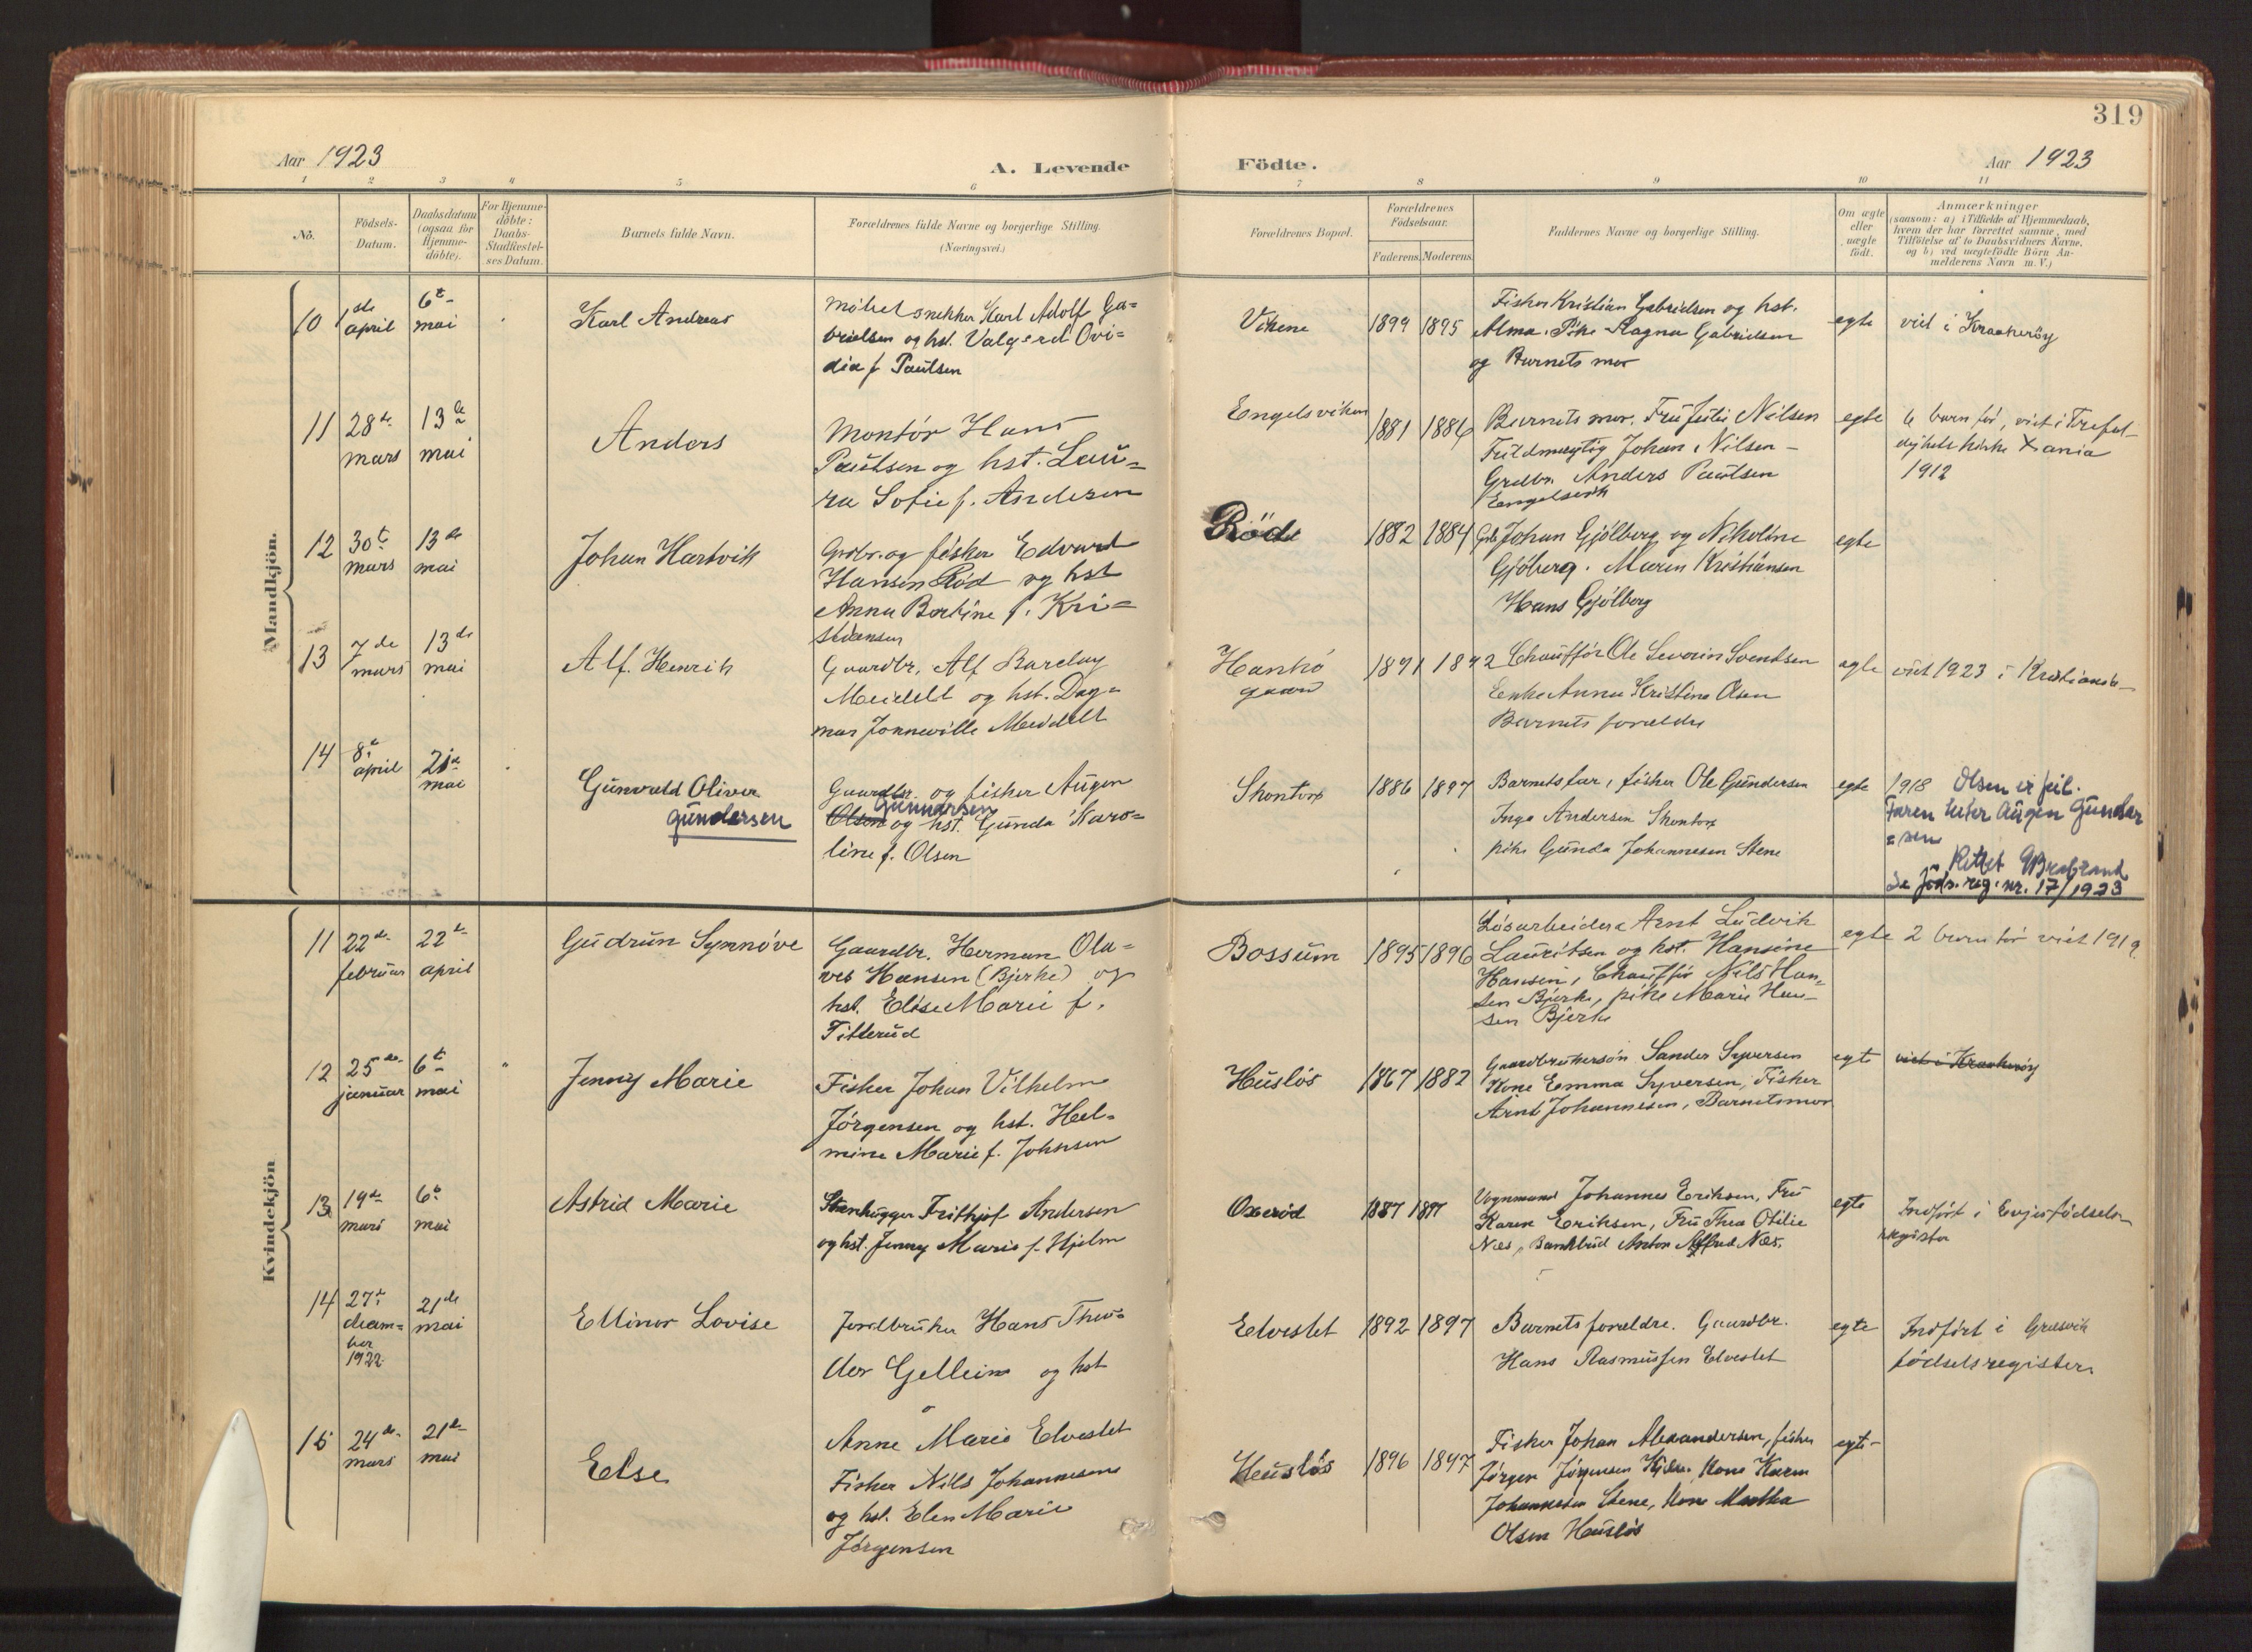 319
Aar 1923
A. Levende Födte.
Aar 1923
1 2 3 4 5 6 7 8 9 10 11
No.
Födsels-
Datum.
Daabsdatum
(ogsaa for
Hjemme-
döbte).
For Hjemme-
döbte:
Daabs-
Stadfæstel-
ses Datum.
Barnets fulde Navn.
Forældrenes fulde Navne og borgerlige Stilling.
(Næringsvei.)
Forældrenes Bopæl.
Forældrenes
Födselsaar.
Faderens. Moderens.
Faddernes Navne og borgerlige Stilling.
Om ægte
eller
uægte
födt.
Anmærkninger
(saasom: a) i Tilfælde af Hjemmedaab,
hvem der har forrettet samme, med
Tilföielse af to Daabsvidners Navne.
og b) ved uægtefödte Börn An-
melderens Navn m. V.)
Mandkjön.
10
1ste
april
6te
mai
Karl Andreas
Møbelsnekker Karl Adolf Ga=
brielsen og hst. Valgerd Ovi=
dia f. Paulsen
Vikene
1899 1895
Fisker Kristian Gabrielsen og hst.
Alma. Pike Ragna Gabrielsen
og Barnets mor
egte
viet i Kraakerøy
11
28de
mars
13de
mai
Anders
Montør Hans
Paulsen og hst. Lau=
ra Sofie f. Andersen
Engelsviken
1881 1886
Barnets mor. Fru Julie Nilsen
Fuldmægtig Johan Nilsen -
Grdbr. Anders Paulsen
Engelsvik
egte
6 barn før, viet i Trefol-
dighetskirke Xania
1912
12
30te
mars
13de
mai
Johan Hartvik
Grdbr. og fisker Edvard
Hansen Rød og hst
Anna Bertine f. Kri=
stiansen
Röd
1882 1884
Johan Gjølberg og Nikoline
Gjøberg. Maren Kristiansen
Hans Gjølberg
egte
13
7de
mars
13de
mai
Alf. Henrik
Gaardbr. Alf Barclay
Meidell og hst. Dag=
mar Jonneville Meidell
Hankø
gaard
1891 1892
Chauffør Ole Severin Svendsen
Enke Anna Kristine Olsen
Barnets forældre
egte
viet 1923 i Kristiania
14
8de
april
21de
mai
Gunvald Oliver
Gundersen
Gaardbr. og fisker Augen
Olsen Gundersen og hst. Gunda Karo=
line f. Olsen
Skontorp
1886 1897
Barnets far, fisker Ole Gundersen
Inga Andersen Skontorp
pike Gunda Johannesen Stene
egte
1918 Olsen er feil.
Faren heter Augen Gunder
=sen
Rettet
Se föds. reg. nr. 17/1923
Kvindekjön
11
22de
februar
22de
april
Gudrun Synnøve
Gaardbr. Herman Ola=
ves Hansen (Bjerke) og
hst. Elise Marie f.
Titterud
Bossum
1895 1896
Løsarbeidere Arnt Ludvik
Lauritsen og hst. Hansine
Hansen, Chauffør Nils Han=
sen Bjerke, pike Marie Han-
sen Bjerke
egte
2 barn før viet 1919
12
25de
januar
6te
mai
"
Jenny Marie
Fisker Johan Vilhelm
Jørgensen og hst. Hel=
mine Marie f. Johnsen
Husløs
1867 1882
Gaardbrukersøn Sander Syversen
Kone Emma Syversen, Fisker
Arnt Johannesen, Barnets mor
egte
viet i Kraakerøy
13
19de
mars
6te
mai
Astrid Marie
Stenhugger Frithjof Andersen
og hst. Jenny Marie f. Hjelm
Oxerød
1887 1897
Vognmand Johannes Eriksen, Fru
Karen Eriksen, Fru Thea Otilie
Næs, Bankbud Anton Alfred Næs.
egte
Indført i Evjes fødsels-
register
14
27de
decem=
ber
1922
21de
mai
Ellinor Lovise
Jordbruker Hans Theo=
dor Gellein og hst
Anne Marie Elveslet
Elveslet
1892 1897
Barnets forældre. Gaardbr.
Hans Rasmussen Elveslet
egte
Indført i Gresvik
fødselsregister
15
24de
mars
21de
mai
Else
Fisker Nils Johannesen
og hst. Elen Marie
Jørgensen
Husløs
1896 1897
Fisker Johan Alexandersen, fisker
Jørgen Jørgensen Kjær. Kone Karen
Johannesen Stene, Kone Martha
Olsen Husløs
egte